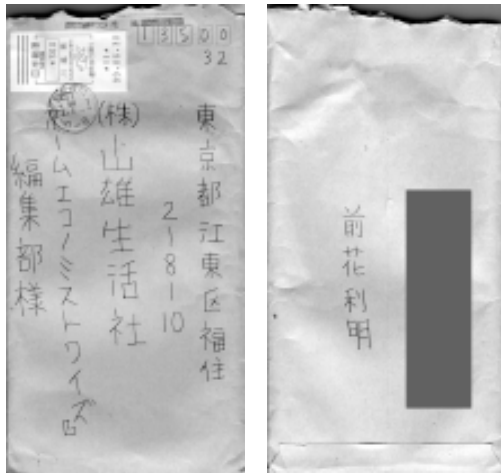 13500
32
東京都江東区福住
2-8-10
(株)山雄生活社
『ホームエコノミストワイズ』
編集部様
前花利明